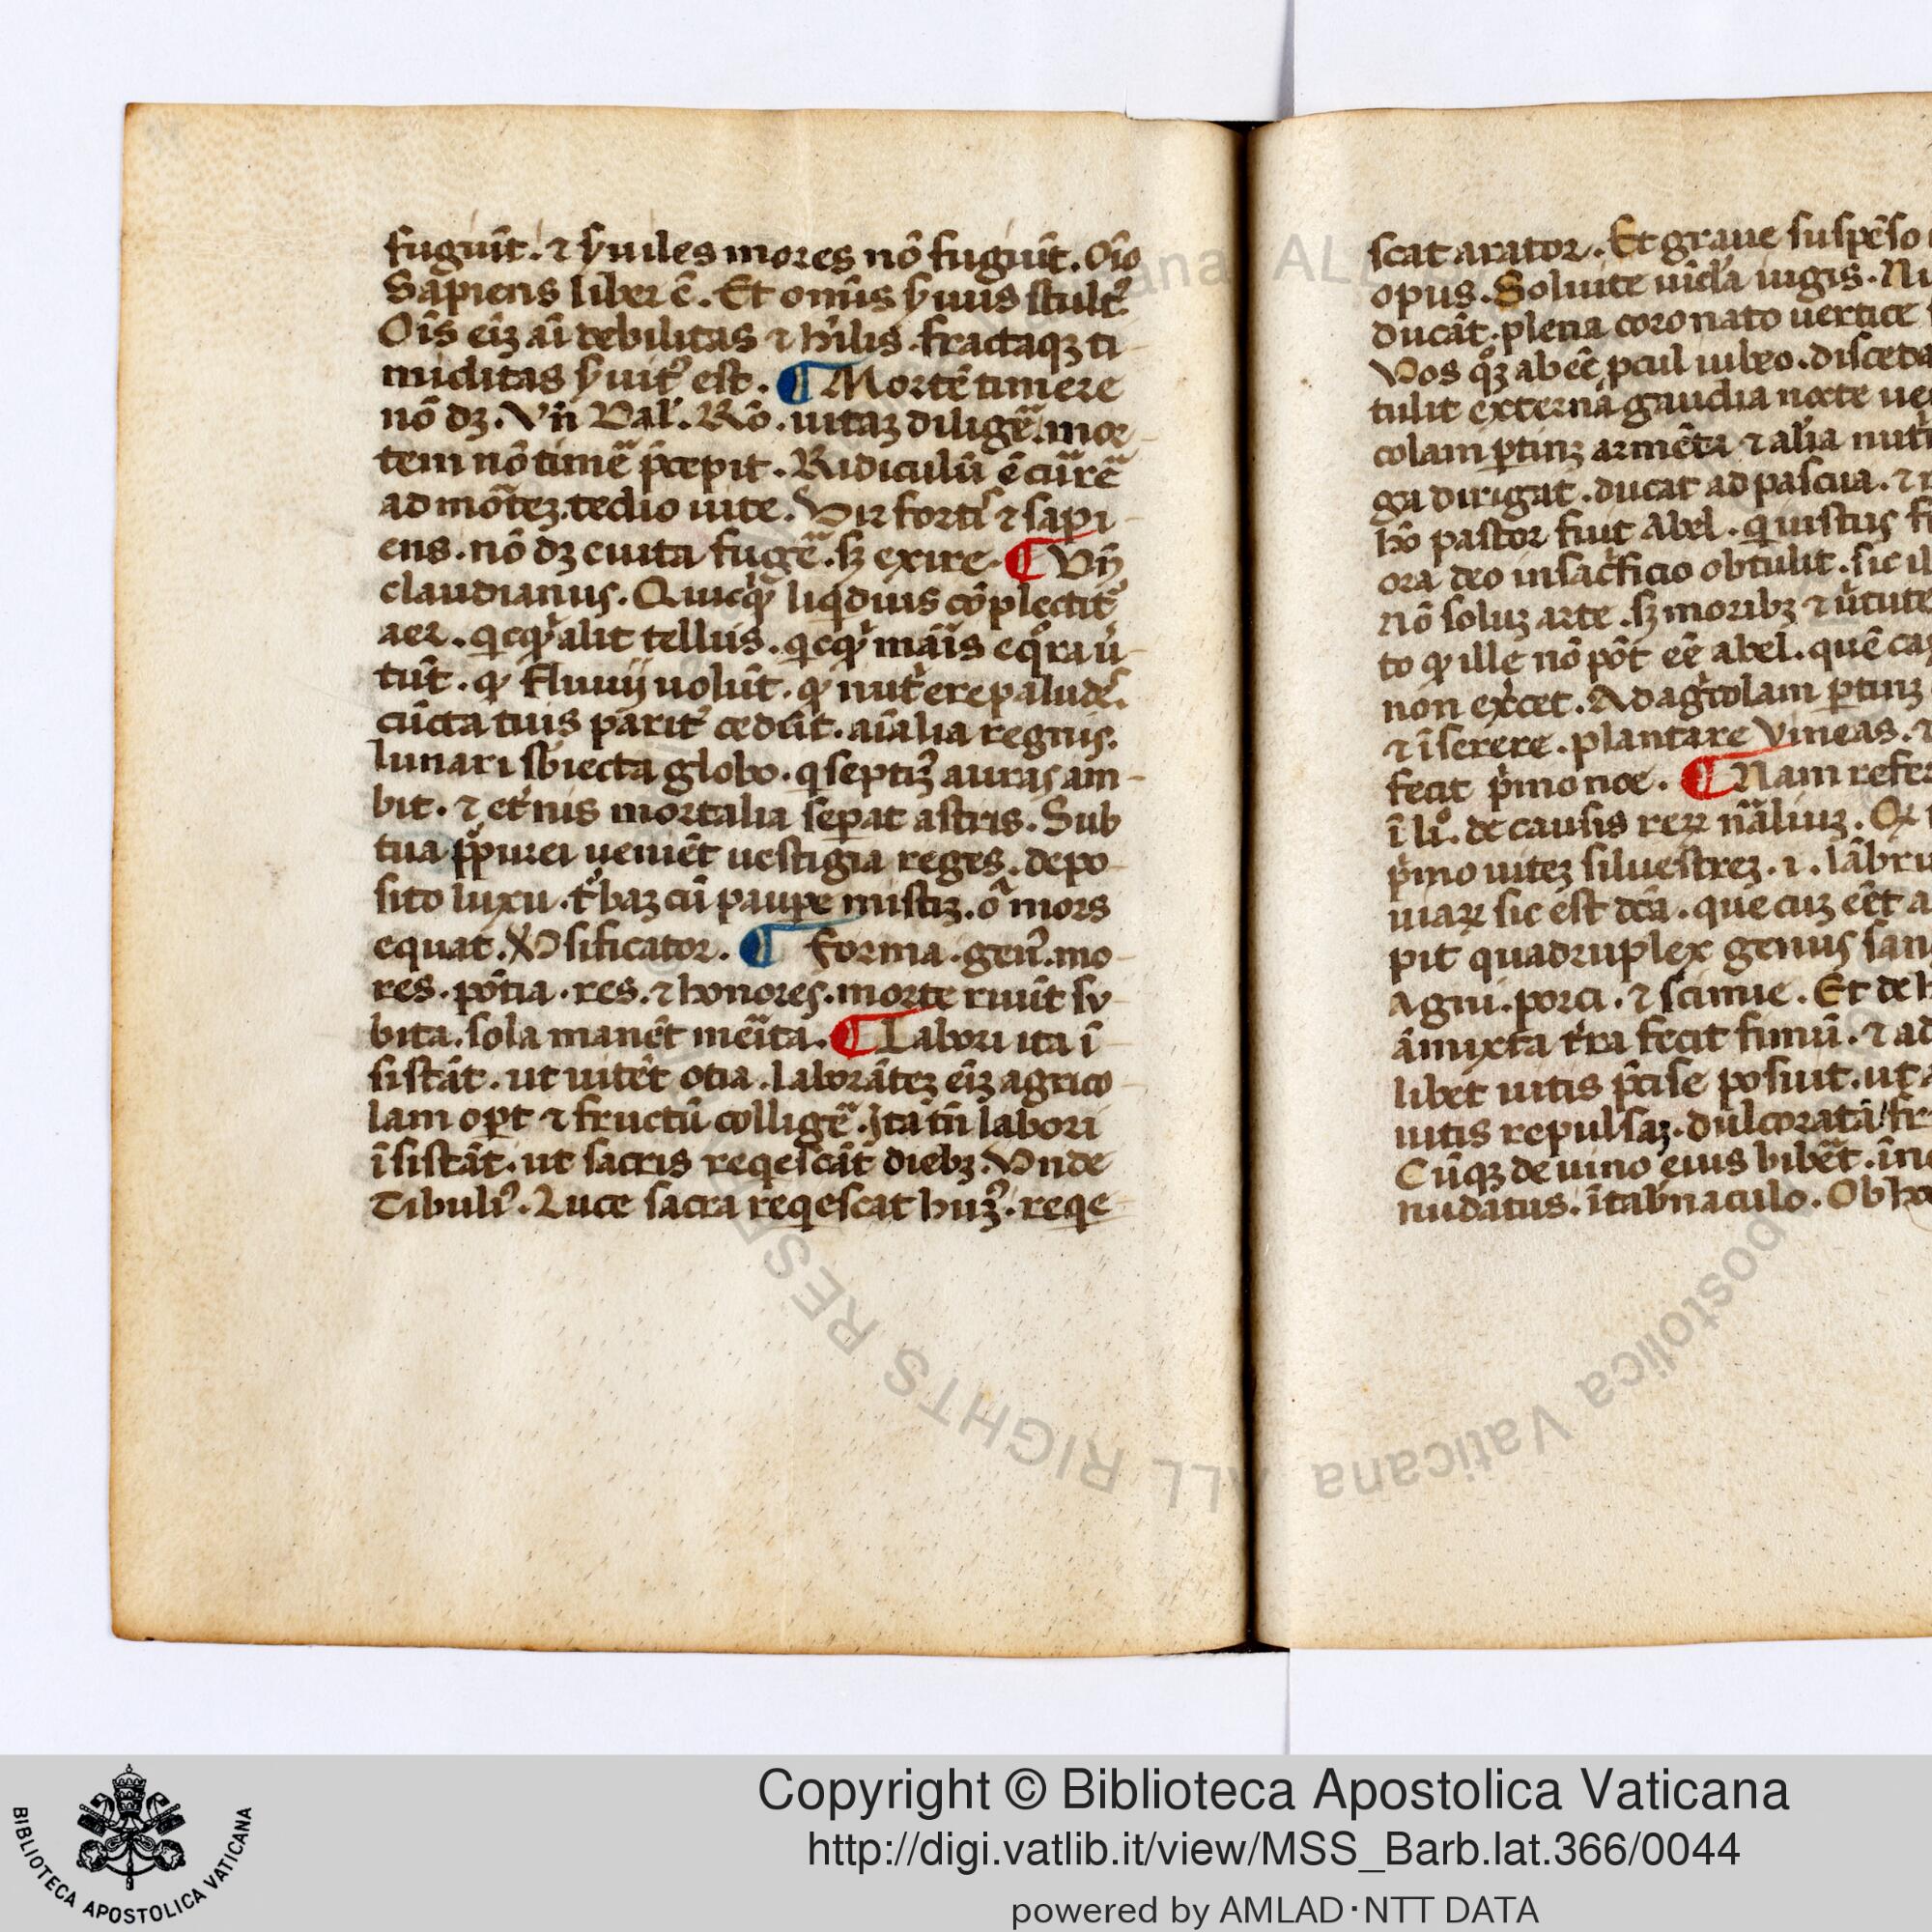 fugiūt. ⁊ ẏmiles mores nō fugiūt. Oīo
Sapiens liber ē. Et omīs ẏuus stult᷒.
Oīs eiꝫ aī debilitas ⁊ hīlis. fractaqꝫ ti
miditas ẏuit᷒ est. ¶ Mortē timere
nō dꝫ. Vn̄ Val'. Rō. uitaꝫ diligē. mor
tem nō timē p̄cepit. Ridiculū ē cūrē
ad mōteꝫ. tedio uite. Vir forti᷒ ⁊ sapi
ens. nō dꝫ e uita fugē. sꝫ exire. ¶ Vn̄
claudianus. Quicq liqduis cōplectit᷒
aer. qcq alit tellus. qcq māis eqra ū
tūt. q fluuij uolūt. q nut'ere palude᷒.
cūcta tuis parit᷒ cedūt. aīalia regnis.
lunari sbiecta globo. q septiꝫ auras am
bit. ⁊ et'nis mortalia sepat astris. Sub
tua ppurei ueniēt uestigia reges. depo
sito luxu. t'baꝫ cū paupe mistiꝫ. oā mors
equat. Vsificator. ¶ forma. gen᷒. mo
res. pōtia. res. ⁊ honores. morte ruūt sv
bita. sola manēt mēita. ¶ Labori ita ī
sistāt. ut uitēt otia. laborāteꝫ eiꝫ agrico
lam opt ⁊ fructū colligē. Ita tn̄ labori
īsistāt. ut sacris reqescāt diebꝫ. Vnde
Tibuli᷒. Luce sacra reqescat huꝫ. reqe
scat arator. Et graue suspēso
opus. Soluite uicla iugis. Nu
ducāt. plena coronato uertice
Vos qꝫ abeē pcul iubeo. disceda
tulit externā gaudia nocte ue
colam ptinꝫ armēta ⁊ alia nut'i
ga dirigat. ducat ad pascua. ⁊
hō pastor fuit Abel. qui stus
ora deo in sacficio obtulit. sic
nō soluꝫ arte. sꝫ moribꝫ ⁊ ūtute
to q ille nō pōt eē abel. quē ca
non exercet. Ad agcolam ptinꝫ
⁊ īserere. plantare vineas.
fecit pmo noe. ¶ Nam refer
ī li. de causis reꝝ nāliuꝫ. Q
pmo uiteꝫ siluestreꝫ. i. lābru
uiaꝝ sic est dcā. que cuꝫ eēt a
pit quadruplex genus san
Agni. porci. ⁊ scimie. Et de h
āmixta t'ra fecit fimū. ⁊ ad
libet uitis pcise posuit. ut
uitis repulsaꝫ. dulcorata fr
Cūqꝫ de uino eius bibēt. īn
nudatus. ī tabnaculo. Ob ho
Copyright © Biblioteca Apostolica Vaticana
http://digi.vatlib.it/view/MSS_Barb.lat.366/0044
powered by AMLAD·NTT DATA
BIBLIOTECA APOSTOLICA VATICANA